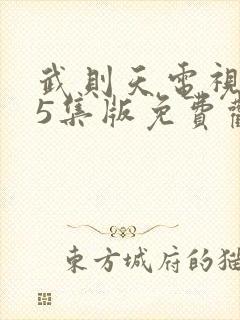 武則天電視
5集版免費觀
東方城府的猫